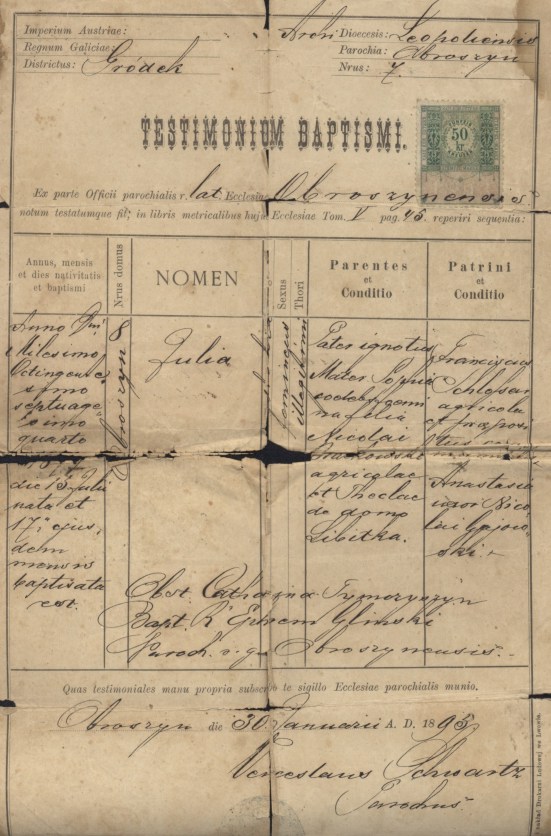 Imperium Austriae:
Regnum Galiciae:
Districtus: Gródek
Archi Dioecesis: Leopoliensis
Parochia: Obroszyn
Nrus: 7
50
kr.
TESTIMONIUM BAPTISMI.
Ex parte Officii parochialis r. lat. Ecclesiae Obroszynensis
notum testatumque fit, in libris metricalibus hujus Ecclesiae Tom. V pag. 45. reperiri sequentia:
Annus, mensis
et dies nativitatis
et baptismi
Nrus domus
NOMEN
Sexus
Thori
Parentes
et
Conditio
Patrini
et
Conditio
Anno Dni
Milesimo
Octingente
simo
septuage
simo
quarto
die 13 Julii
nata et
17. ejus
dem
mensis
baptisata
est.
8
Obroszyn
Julia
femineus
illegitimi
Pater ignotus
Mater Sophia
filia
Nicolai
agricolae
et Theclae
de domo
Libitka.
Franciscus
Schlosar
agricola
et praeposi
tus
Anastasia
uxor Nico
lai Gajow
ski.
Obst. Catharina Tymoryszyn
Bapt. R. Ephrem Glinski
Paroch. r. g. Obroszynensis.
Quas testimoniales manu propria subscribo te sigillo Ecclesiae parochialis munio.
Obroszyn die 30 Januarii A. D. 1895
Venceslaus Schwartz
Parochus